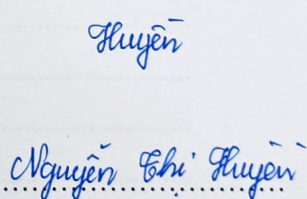 Huyền
Nguyễn Thị Huyền